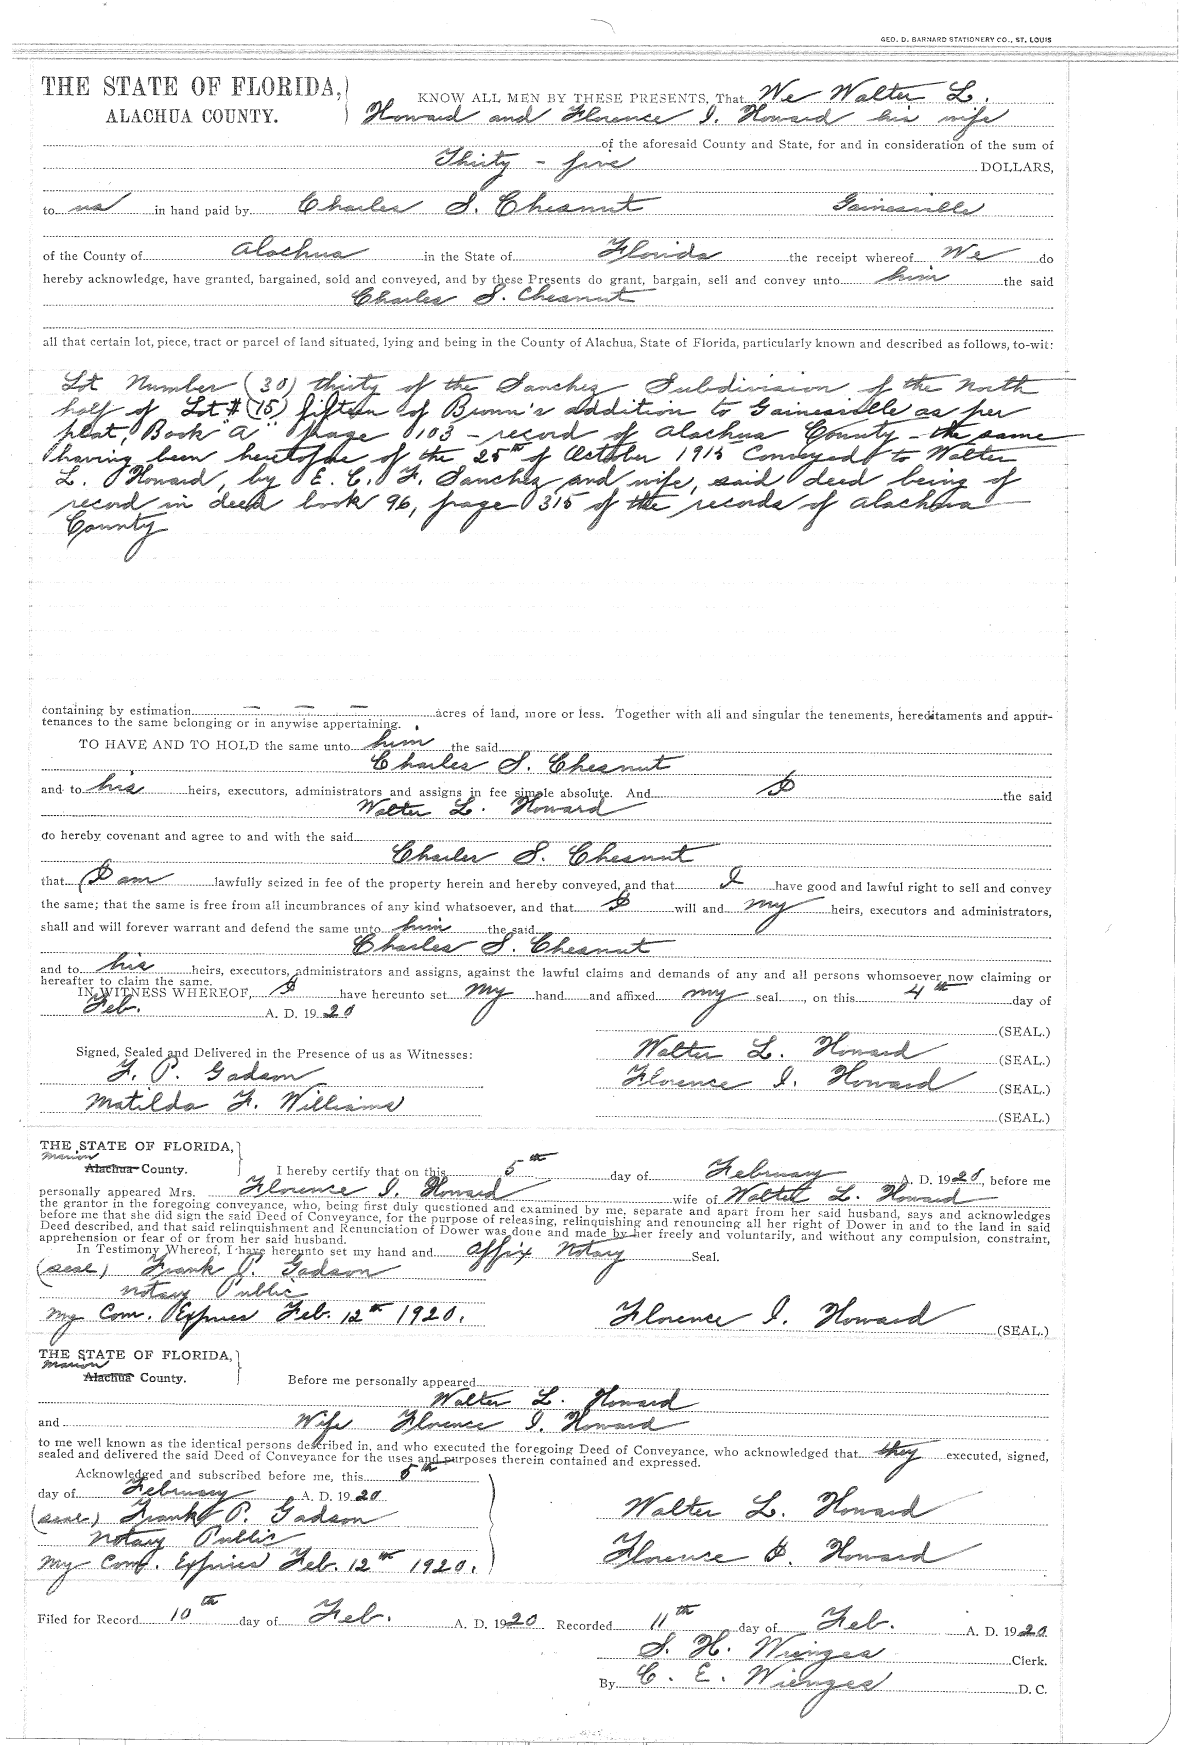 GEO. D. BARNARD STATIONERY CO., ST. LOUIS
THE STATE OF FLORIDA,
ALACHUA COUNTY.
KNOW ALL MEN BY THESE PRESENTS, That We Walter L.
Howard and Florence I. Howard his wife
of the aforesaid County and State, for and in consideration of the sum of
Thirty-five DOLLARS,
to us in hand paid by Charles S. Chesnut Gainesville
of the County of Alachua in the State of Florida the receipt whereof We do
hereby acknowledge, have granted, bargained, sold and conveyed, and by these Presents do grant, bargain, sell and convey unto him the said
Charles S. Chesnut
all that certain lot, piece, tract or parcel of land situated, lying and being in the County of Alachua, State of Florida, particularly known and described as follows, to-wit:
Lot Number (30) thirty of the Sanchez Subdivision of the North
half of Lot # (15) fifteen of Brown's addition to Gainesville as per
plat, Book "A" page 103 - record of Alachua County - the same
having been heretofore of the 25th of October 1915 Conveyed to Walter
L. Howard, by E. C. F. Sanchez and wife, said deed being of
record in deed book 96, page 315 of the records of Alachua
County
containing by estimation — — — acres of land, more or less. Together with all and singular the tenements, hereditaments and appur-
tenances to the same belonging or in anywise appertaining.
TO HAVE AND TO HOLD the same unto him the said
Charles S. Chesnut
and to his heirs, executors, administrators and assigns in fee simple absolute. And I the said
Walter L. Howard
do hereby covenant and agree to and with the said
Charles S. Chesnut
that I am lawfully seized in fee of the property herein and hereby conveyed, and that I have good and lawful right to sell and convey
the same; that the same is free from all incumbrances of any kind whatsoever, and that I will and my heirs, executors and administrators,
shall and will forever warrant and defend the same unto him the said
Charles S. Chesnut
and to his heirs, executors, administrators and assigns, against the lawful claims and demands of any and all persons whomsoever now claiming or
hereafter to claim the same.
IN WITNESS WHEREOF, I have hereunto set my hand and affixed my seal, on this 4th day of
Feb. A. D. 1920
(SEAL.)
Signed, Sealed and Delivered in the Presence of us as Witnesses:
Walter L. Howard (SEAL.)
F. P. Gadson
Florence I. Howard (SEAL.)
Matilda F. Williams
(SEAL.)
THE STATE OF FLORIDA,
Marion
Alachua County.
I hereby certify that on this 5th day of February A. D. 1920, before me
personally appeared Mrs. Florence I. Howard wife of Walter L. Howard
the grantor in the foregoing conveyance, who, being first duly questioned and examined by me, separate and apart from her said husband, says and acknowledges
before me that she did sign the said Deed of Conveyance, for the purpose of releasing, relinquishing and renouncing all her right of Dower in and to the land in said
Deed described, and that said relinquishment and Renunciation of Dower was done and made by her freely and voluntarily, and without any compulsion, constraint,
apprehension or fear of or from her said husband.
In Testimony Whereof, I have hereunto set my hand and affix Notary Seal.
(seal) Frank P. Gadson
Notary Public
My Com. Expires Feb. 12th 1920.
Florence I. Howard (SEAL.)
THE STATE OF FLORIDA,
Marion
Alachua County.
Before me personally appeared
Walter L. Howard
and Wife Florence I. Howard
to me well known as the identical persons described in, and who executed the foregoing Deed of Conveyance, who acknowledged that they executed, signed,
sealed and delivered the said Deed of Conveyance for the uses and purposes therein contained and expressed.
Acknowledged and subscribed before me, this 5th
day of February A. D. 1920
(seal) Frank P. Gadson
Walter L. Howard
Notary Public
My Com. Expires Feb. 12th 1920.
Florence I. Howard
Filed for Record 10th day of Feb. A. D. 1920 Recorded 11th day of Feb. A. D. 1920
S. H. Wienges Clerk.
By C. E. Wienges D. C.